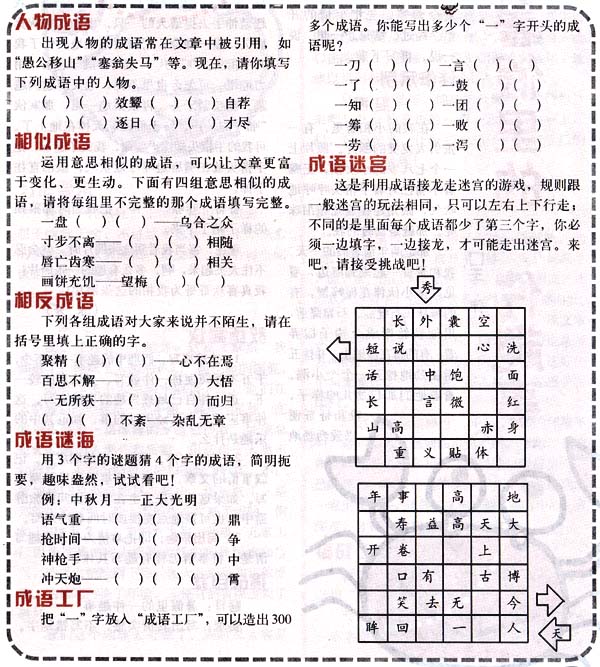 人物成语
出现人物的成语常在文章中被引用，如
“愚公移山”“塞翁失马”等。现在，请你填写
下列成语中的人物。
（　）（　）效颦（　）（　）自荐
（　）（　）逐日（　）（　）才尽
相似成语
运用意思相似的成语，可以让文章更富
于变化、更生动。下面有四组意思相似的成
语，请将每组里不完整的那个成语填写完整。
一盘（　）（　）——乌合之众
寸步不离——（　）（　）相随
唇亡齿寒——（　）（　）相关
画饼充饥——望梅（　）（　）
相反成语
下列各组成语对大家来说并不陌生，请在
括号里填上正确的字。
聚精（　）（　）——心不在焉
百思不解——（　）（　）大悟
一无所获——（　）（　）而归
（　）（　）不紊——杂乱无章
成语谜海
用3个字的谜题猜4个字的成语，简明扼
要，趣味盎然，试试看吧！
例：中秋月——正大光明
语气重——（　）（　）（　）鼎
抢时间——（　）（　）（　）争
神枪手——（　）（　）（　）中
冲天炮——（　）（　）（　）霄
成语工厂
把“一”字放入“成语工厂”，可以造出300
多个成语。你能写出多少个“一”字开头的成
语呢？
一刀（　）（　）一言（　）（　）
一了（　）（　）一鼓（　）（　）
一知（　）（　）一团（　）（　）
一筹（　）（　）一败（　）（　）
一劳（　）（　）一泻（　）（　）
成语迷宫
这是利用成语接龙走迷宫的游戏，规则跟
一般迷宫的玩法相同，只可以左右上下行走；
不同的是里面每个成语都少了第三个字，你必
须一边填字，一边接龙，才可能走出迷宫。来
吧，请接受挑战吧！
秀
长 外 囊 空
短 说 心 洗
话 中 饱 面
长 言 微 红
山 高 赤 身
重 义 贴 体
年 事 高 地
寿 益 高 天 大
开 卷 上
口 有 古 博
笑 去 无 今
眸 回 一 人
天